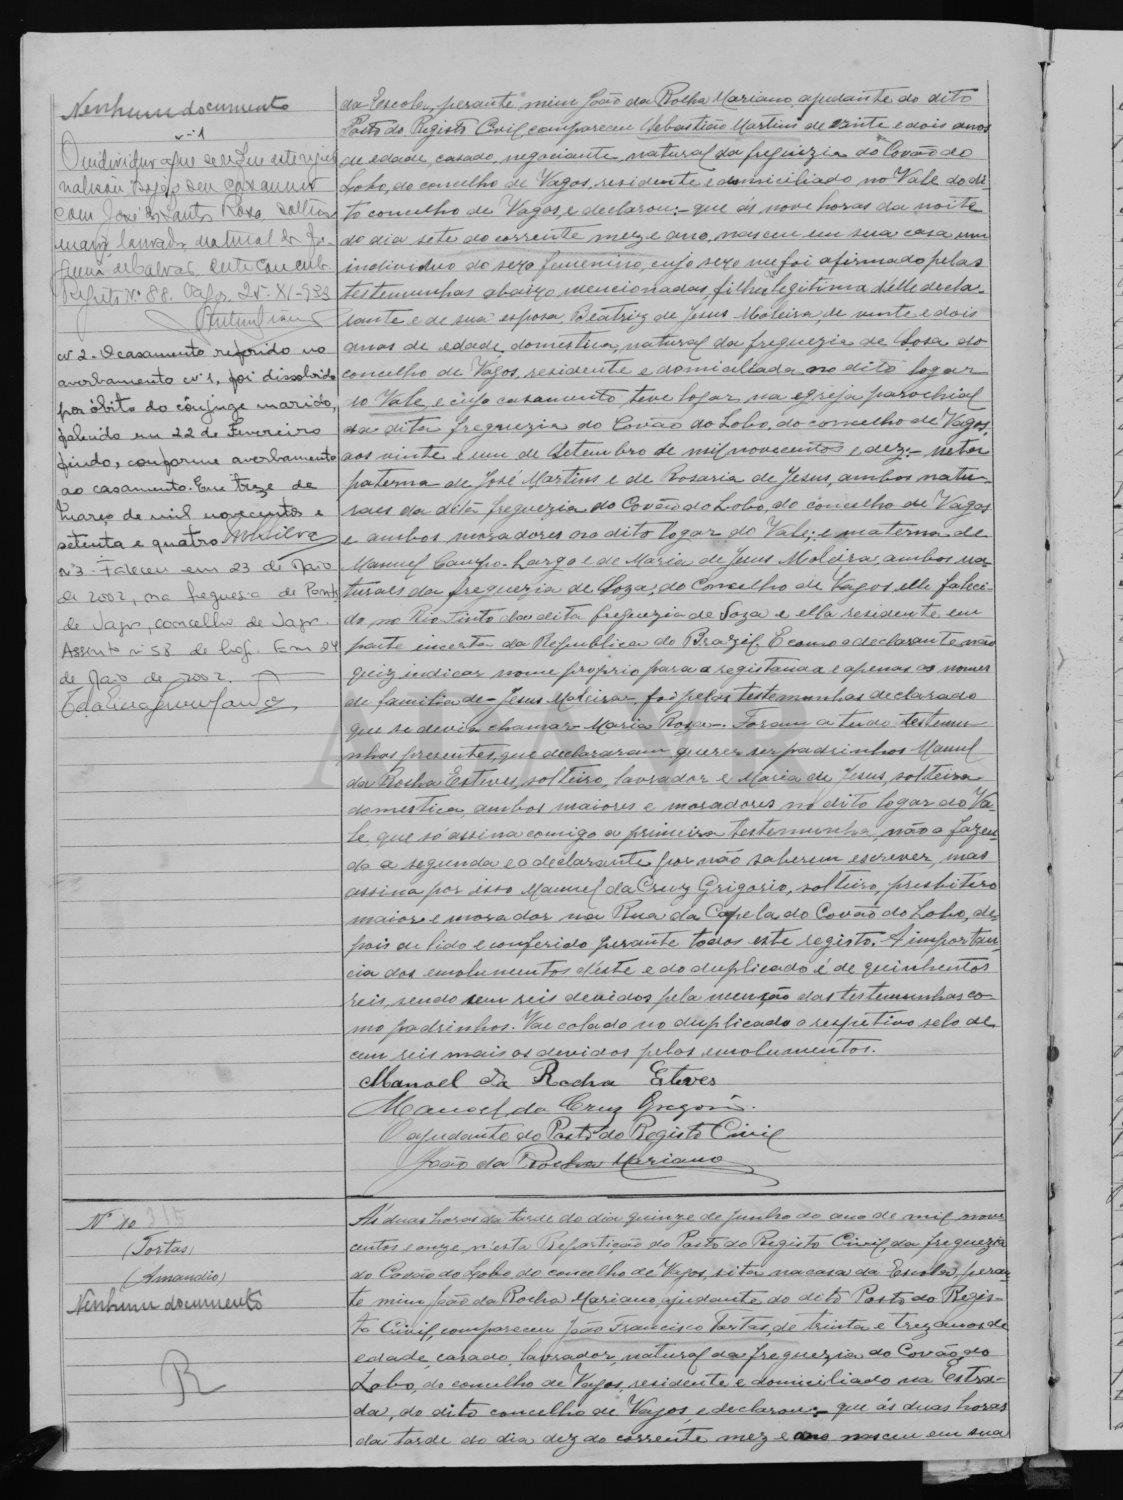 Nenhum documento
nº 1
O individuo a que se refere este regis
com José dos Santos Rosa, solteiro
lavrador, natural da fre-
guesia de Calvão, deste concelho.
Registo Nº 88. Vagos, 25-XI-933
nº 2. O casamento referido no
averbamento nº 1, foi dissolvido
por óbito do cônjuge marido,
falecido em 22 de Fevereiro
findo, conforme averbamento
ao casamento. Em treze de
Março de mil novecentos e
setenta e quatro. MSilva
nº 3. Faleceu em 23 de Maio
de 2002, na freguesia de Ponte
de Vagos, concelho de Vagos.
Assento nº 58 de 2002. Em 24
de Maio de 2002.
da Escola, perante mim João da Rocha Mariano, ajudante do dito
Posto do Registo Civil compareceu Sebastião Martins de vinte e dois anos
de edade, casado, negociante, natural da freguezia do Covão do
Lobo, do concelho de Vagos, residente e domiciliado no Vale do di-
to concelho de Vagos, e declarou:- que ás nove horas da noite
do dia sete do corrente mez e ano, nasceu em sua casa um
individuo do sexo femenino, cujo sexo me foi afirmado pelas
testemunhas abaixo mencionadas, filha legitima d'elle decla-
rante e de sua esposa, Beatriz de Jesus Moleira, de vinte e dois
anos de edade, domestica, natural da freguezia de Soza do
concelho de Vagos, residente e domiciliada no dito logar
do Vale, e cujo casamento teve logar na egreja parochial
da dita freguezia do Covão do Lobo, do concelho de Vagos,
aos vinte e um de Setembro de mil novecentos e dez:- neta
paterna de José Martins e de Rosaria de Jesus, ambos natu-
raes da dita freguezia do Covão do Lobo, do concelho de Vagos
e ambos moradores no dito logar do Vale; e materna de
Manuel Campo-Largo e de Maria de Jesus Moleira, ambos na-
turaes da freguezia de Soza, do concelho de Vagos, elle faleci-
do no Rio Tinto da dita freguezia de Soza e ella residente em
parte incerta da Republica do Brazil. E como o declarante não
quiz indicar nome proprio para a registanda e apenas os nomes
de familia de - Jesus Moleira - foi pelas testemunhas declarado
que se devia chamar - Maria Rosa -. Foram a tudo testemu-
nhas presentes, que declararam querer ser padrinhos Manuel
da Rocha Esteves, solteiro, lavrador e Maria de Jesus, solteira
domestica, ambos maiores e moradores no dito logar do Va-
le, que só assina comigo a primeira testemunha, não o fazen-
do a segunda e o declarante por não saberem escrever, mas
assina por isso Manuel da Cruz Grigorio, solteiro, presbitero
maior e morador na Rua da Capela do Covão do Lobo, de-
pois de lido e conferido perante todos este registo. A importan-
cia dos emolumentos d'este e do duplicado é de quinhentos
reis, sendo cem reis devidos pela menção das testemunhas co-
mo padrinhos. Vae colado no duplicado o respetivo selo de
cem reis mais os devidos pelos emolumentos.
Manoel da Rocha Esteves
Manoel da Cruz Gregorio.
O ajudante do Posto do Registo Civil
João da Rocha Mariano
Nº 10 315
(Tortas)
(Amandio)
Nenhum documento
R
A's duas horas da tarde do dia quinze de Junho do ano de mil nove
centos e onze, n'esta Repartição do Posto do Registo Civil, da freguezia
do Covão do Lobo do concelho de Vagos, sita na casa da Escola, peran-
te mim João da Rocha Mariano, ajudante do dito Posto do Regis-
to Civil, compareceu João Francisco Tortas, de trinta e trez anos de
edade, casado, lavrador, natural da freguezia do Covão do
Lobo, do concelho de Vagos, residente e domiciliado na Estra-
da, do dito concelho de Vagos, e declarou:- que ás duas horas
da tarde do dia dez do corrente mez e ano nasceu em sua